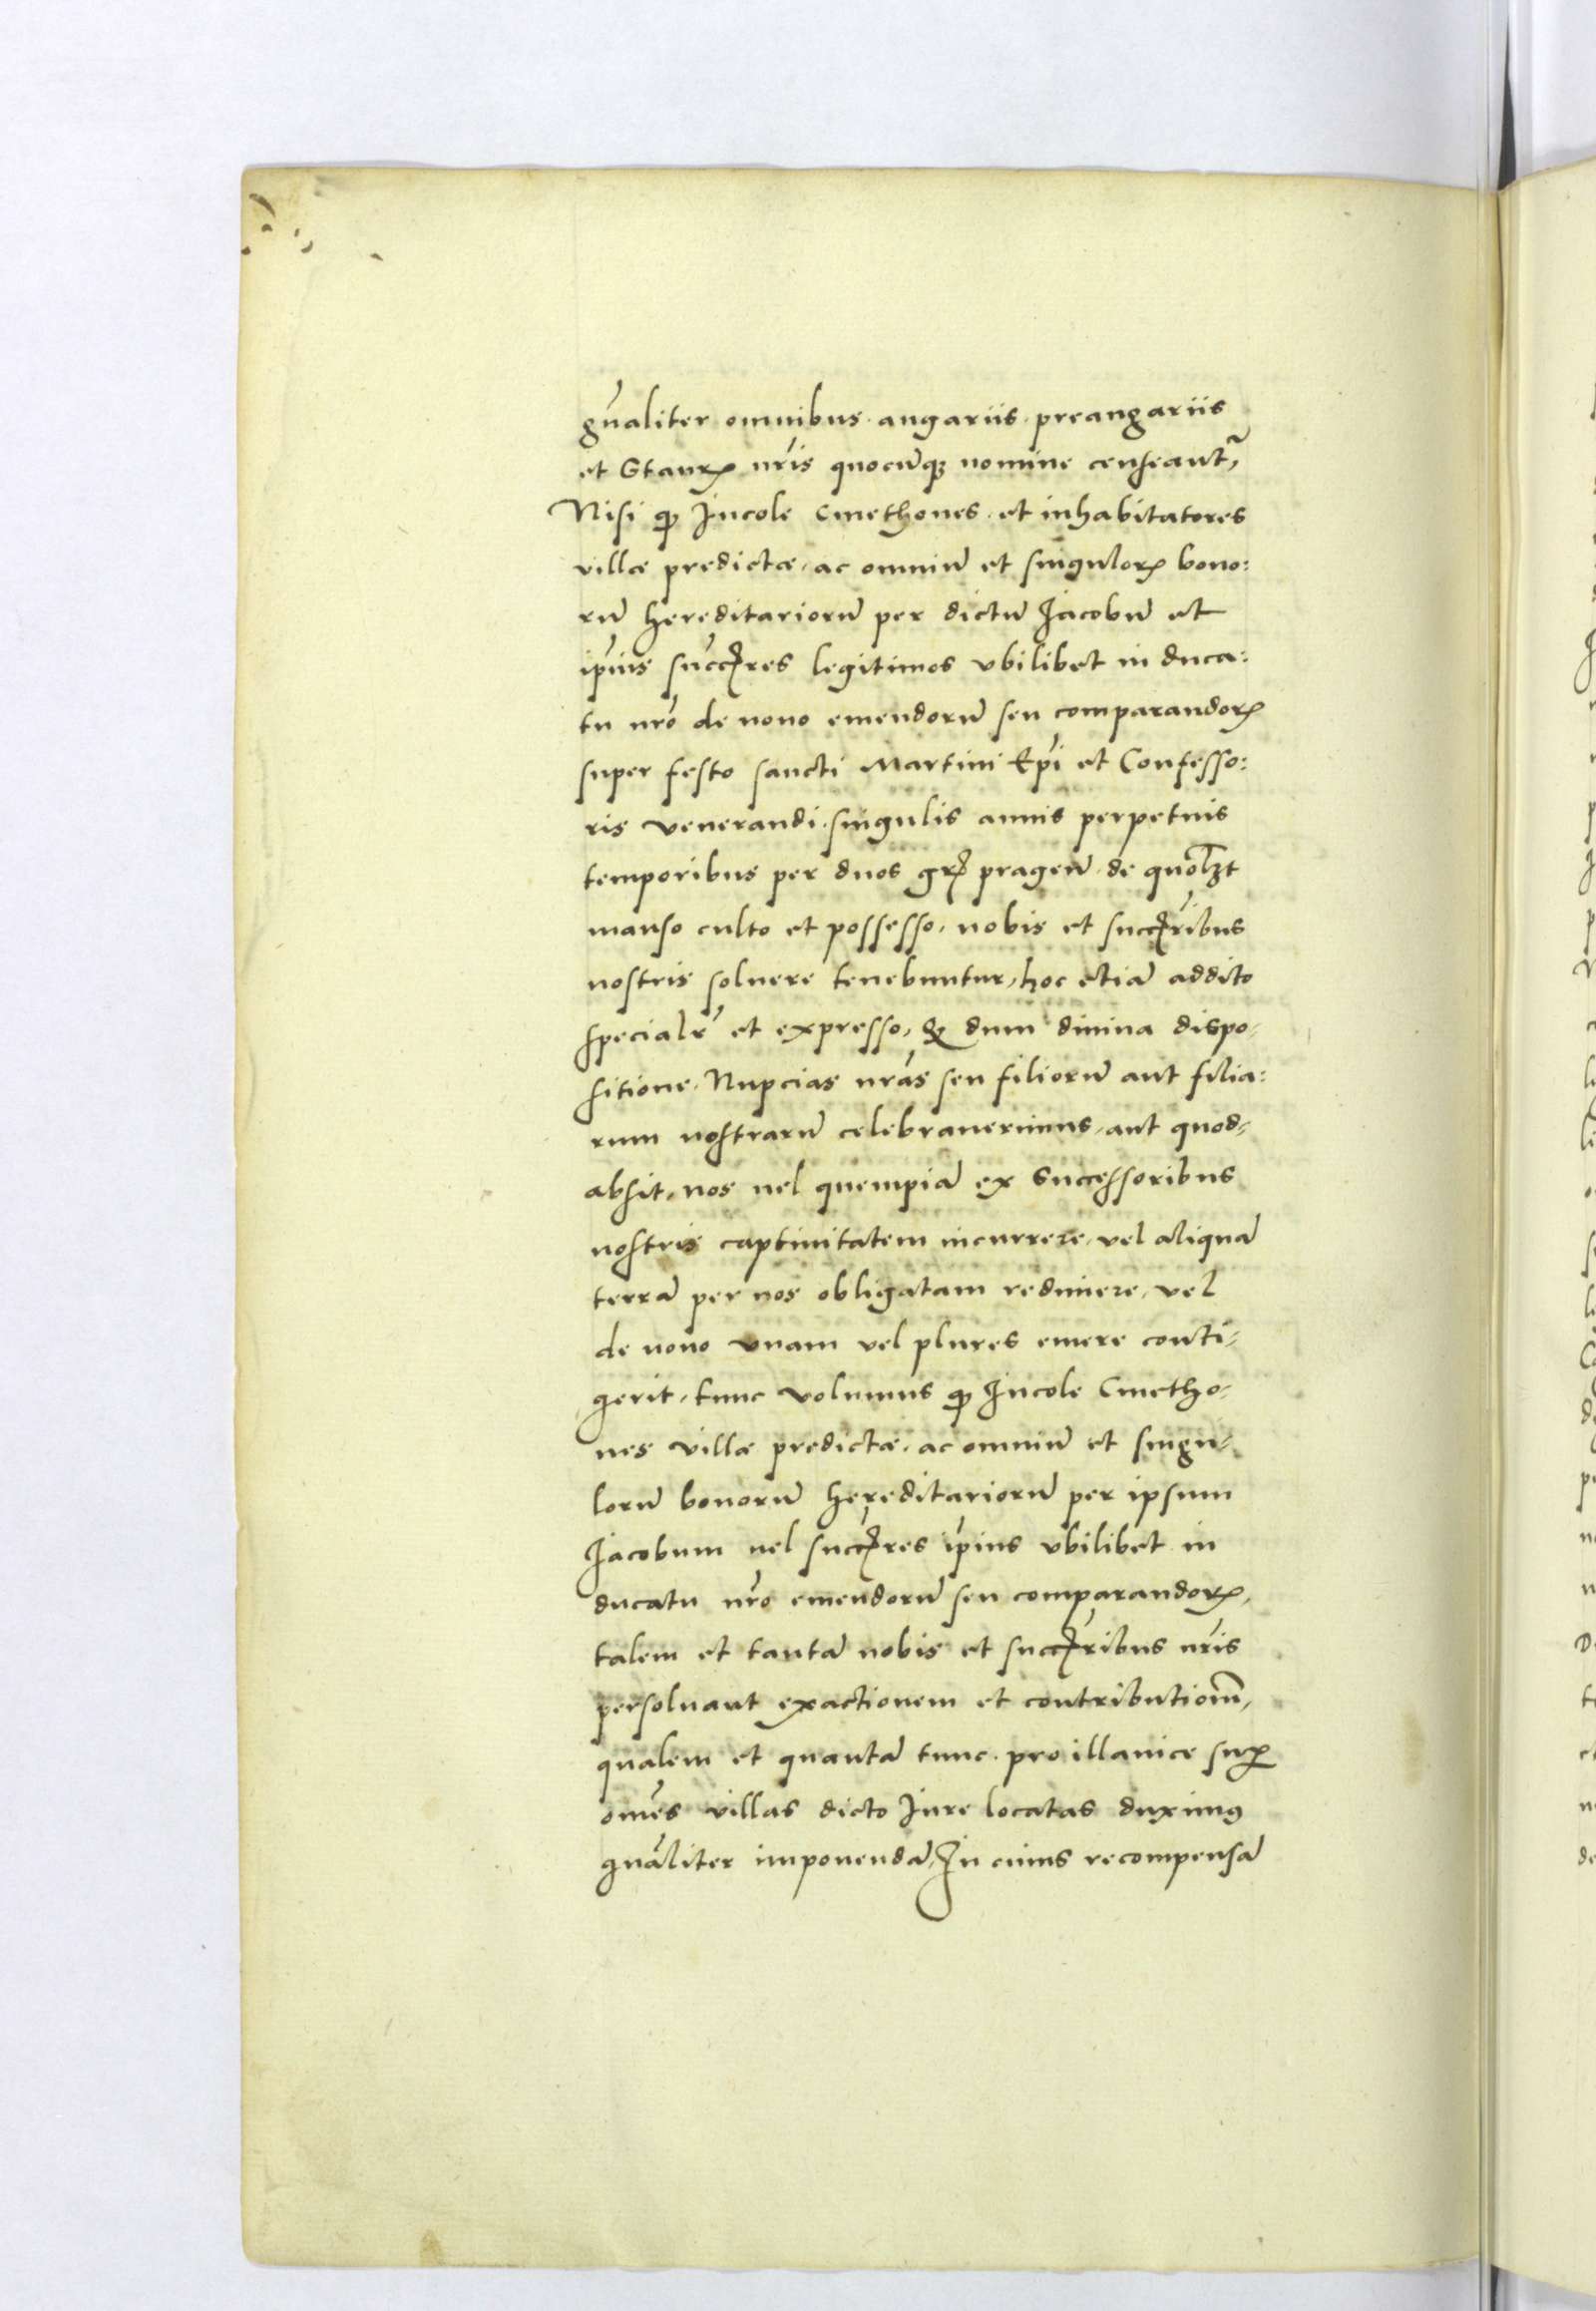 gn̄aliter omnibus angariis preangariis
et Gtauꝝ nr̄is quocūqꝫ nomine censeant᷑,
Nisi ꝙ Incole Cmethones et inhabitatores
villæ predictæ, ac omniū et singuloꝝ bono:
rū hereditariorū per dictū Jacobū et
ip̄ius succ̄res legitimos vbilibet in duca:
tu nr̄o de nouo emendorū seu comparandoꝝ
super festo sancti Martini Ep̄i et Confesso:
ris venerandi singulis annis perpetuis
temporibus per duos gr̄ pragen̄ de quolꝫt
manso culto et possesso, nobis et succ̄ribus
nostris soluere tenebuntur, hoc etiā addito
specialr̄ et expresso, ꝙ dum diuina dispo-
sitione Nupcias nr̄as seu filiorū aut filia:
rum nostrarū celebrauerimus, aut quod-
absit, nos uel quempiā ex Successoribus
nostris captiuitatem incurrere, vel aliquā
terrā per nos obligatam redimere, vel
de nouo vnam vel plures emere conti-
gerit, tunc volumus ꝙ Incole Cmetho-
nes villæ predictæ, ac omniū et singu-
lorū bonorū hereditariorū per ipsum
Jacobum uel succ̄res ip̄ius vbilibet in
ducatu nr̄o emendorū seu comparandoꝝ,
talem et tantā nobis et succ̄ribus nr̄is
persoluant exactionem et contributionm̄,
qualem et quantā tunc pro illa vice suꝑ
om̄es villas dicto Jure locatas duximꝰ
gn̄aliter imponendā, In cuius recompensā